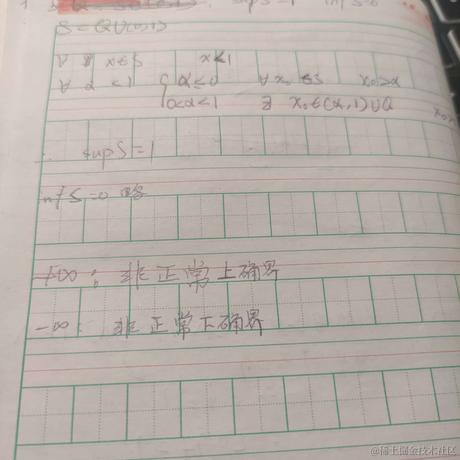 S=Q∪(0,1)
∀ x∈S x<1
∀ α<1 { α≤0 ∀x₀∈S x₀>α
0<α<1 ∃ x₀∈(α,1)∪Q
∴ supS=1
inf S=0
+∞: 非正常上确界
-∞: 非正常下确界
@稀土掘金技术社区